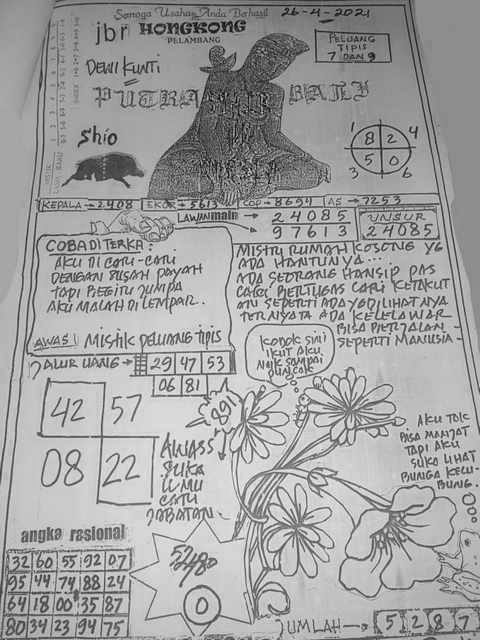 Semoga Usaha Anda Berhasil
26-4-2021
jbr HONGKONG
PELAMBANG
PELUANG
TIPIS
7 DAN 9
DEWI KUNTI
PUTRA
BALI
Shio
1 8 2 4
3 5 0 6
KEPALA→2408 EKOR→5613 COP→8694 AS→7253
LAWANmain → 24085
→ 97613
UNSUR
24085
COBA DITERKA:
AKU DI CARI-CARI
DENGAN SUSAH PAYAH
TAPI BEGITU JUMPA
AKU MALAH DI LEMPAR.
MISTRI RUMAH KOSONG YG
ADA HANTUNYA...
ADA SEORANG HANSIP PAS
CARI BERTUGAS CARI KETAKUT
AN SEPERTI ADA YG DILIHATNYA
TERNYATA ADA KELELAWAR
BISA BERJALAN
SEPERTI MANUSIA-
AWAS! MISTIK PELUANG TIPIS
JALUR UANG→ 29 47 53
06 81
KODOK SINI
IKUT AKU
NAIK SAMPAI
PUNCAK
891
42 57
08 22
AWASS
SUKA
ILMU
CARI
JABATAN-
AKU TAK
BISA MANJAT
TAPI AKU
SUKA LIHAT
BUNGA KECU-
BUNG.
angka rasional
32 60 55 92 07
95 44 74 88 24
64 18 00 35 87
80 34 23 94 75
0
JUMLAH→ 5 2 8 7